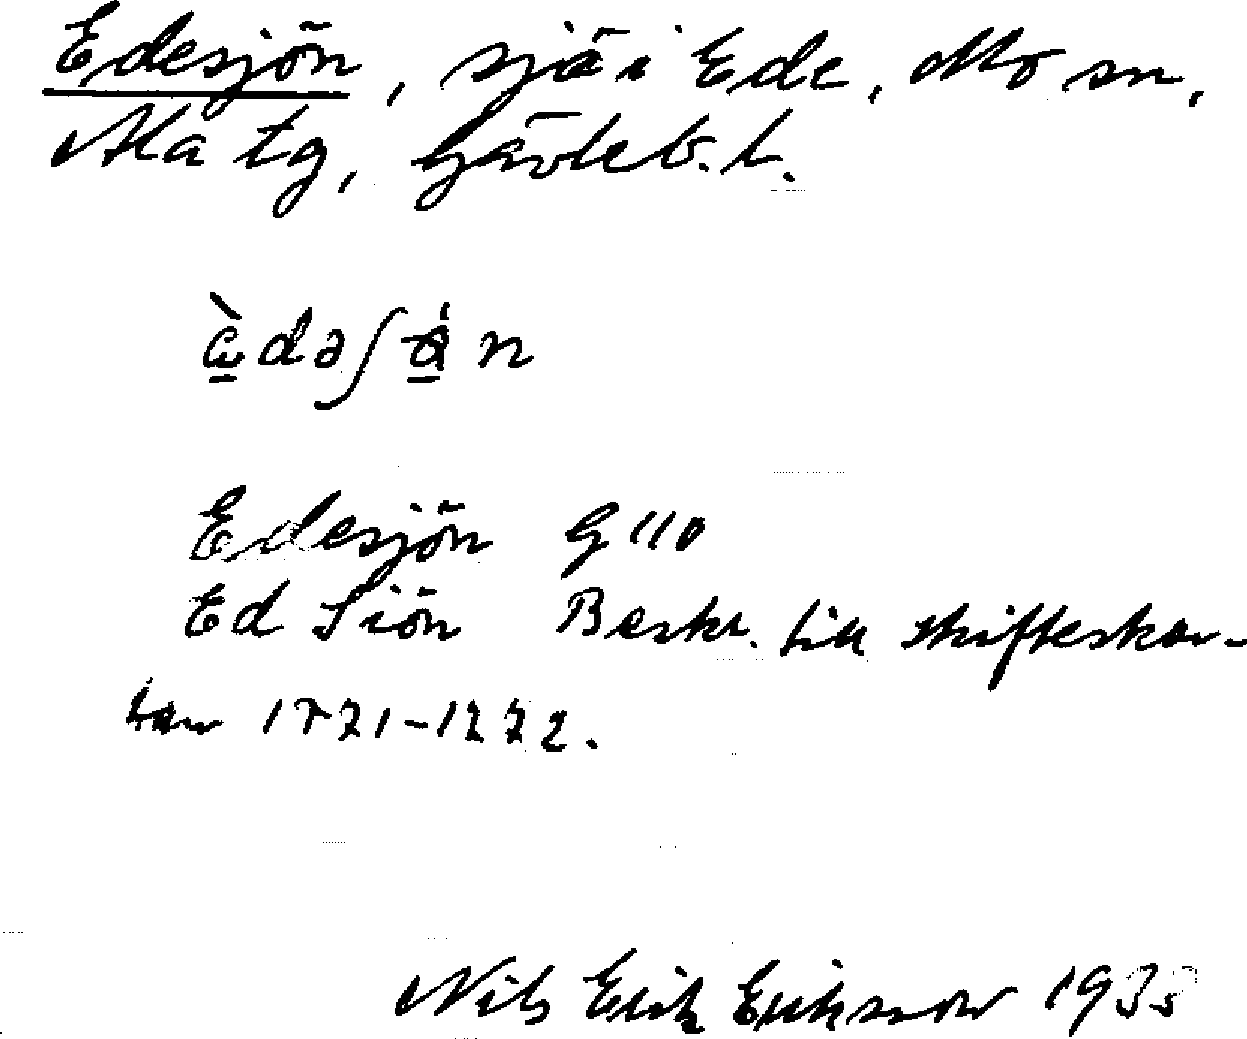 Edesjön, sjö i Ede, Mo sn,
Ala tg, Gävleb. l.
Edesjön G 110
Ed Siön Beskr. till skifteskar-
tan 1771-1772.
Nils Erik Eriksson 1933